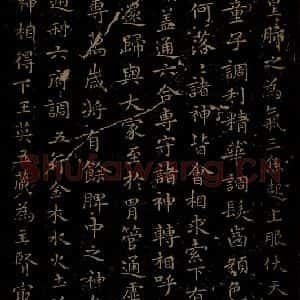 肺之為氣三焦起上服伏天
童子調利精華調髮齒顏色
何落落諸神皆會相求索下有
蓋通六合專守諸神轉相呼
遂歸與大家至於胃管通虛
專萬歲將有餘脾中之神
通利六府調五行金木水火土為
神相得下玉英五藏為主腎
Shufawang.CN